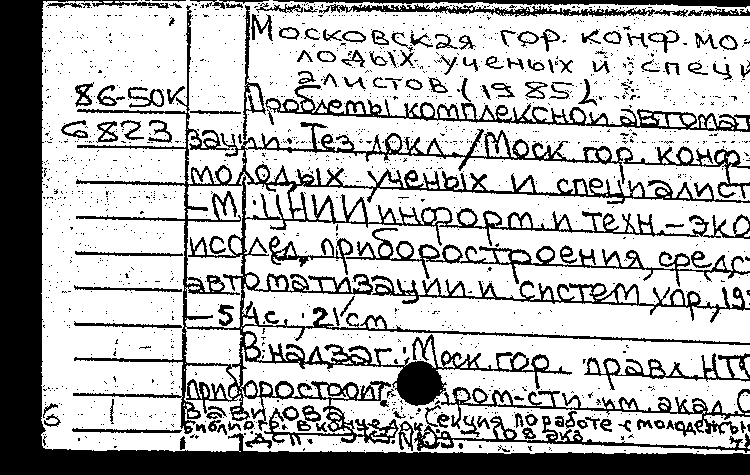 Московская гор. конф. мо-
лодых ученых и специ
алистов (1985)
86-50К
Проблемы комплексной автомат
6823
зации: Тез докл./Моск гор. конф
молодых ученых и специалист
-М.:ЦНИИинформ. и техн.-эко
исслед. приборостроения, средс
автоматизации и систем упр., 19
-54с.; 21 см.
В надзаг.: Моск. гор. правл. НТ
приборостроит пром-сти им. акад. С
Вавилова секция по работе с молодежь
Библиогр. в конце докл.
ДСП. Экз №09. 108 экз.
6